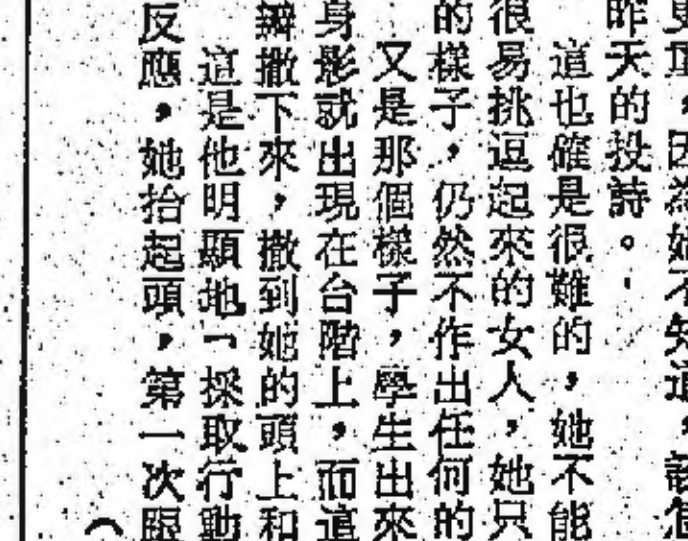 更重，因為她不知道，該怎
昨天的投詩。
這也確是很難的，她不能
很易挑逗起來的女人，她只
的樣子，仍然不作出任何的
又是那個樣子，學生出來
身影就出現在台階上，而這
瓣撒下來，撒到她的頭上和
這是他明顯地「採取行動
反應，她抬起頭，第一次跟
（